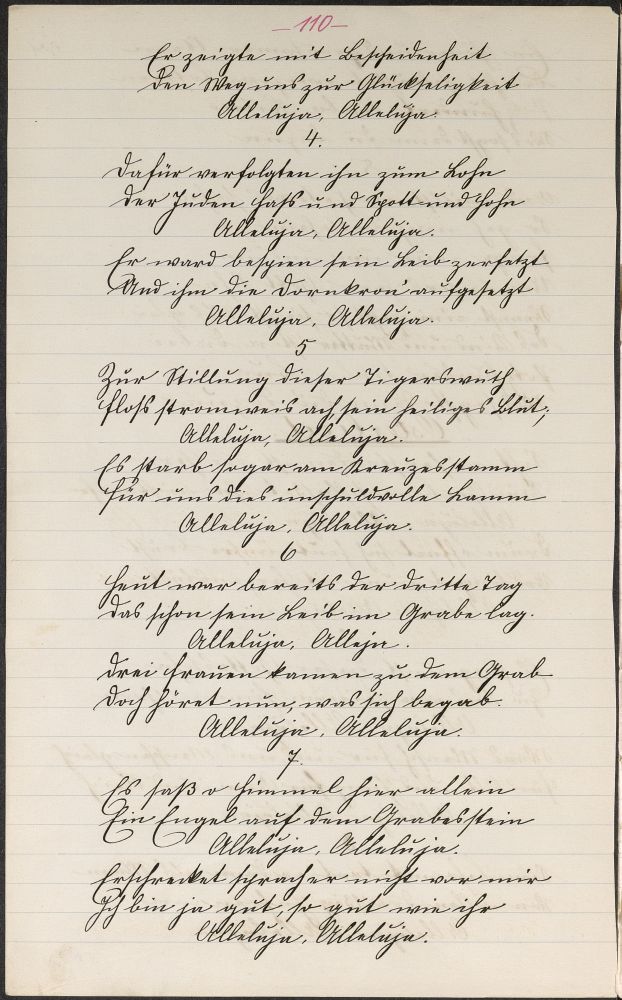 -110-
Er zeigte mit Bescheidenheit
Den Weg uns zur Glückseligkeit
Alleluja, Alleluja.
4.
Dafür verfolgten ihn zum Lohn
Der Juden Hass und Spott und Hohn
Alleluja, Alleluja.
Er ward bespien sein Leib zerfetzt
Und ihm die Dornkron' aufgesetzt
Alleluja, Alleluja.
5
Zur Stillung dieser Tigerswuth
floss stromweis ach, sein heiliges Blut;
Alleluja, Alleluja.
Es starb sogar am Kreuzesstamm
für uns dies unschuldvolle Lamm
Alleluja, Alleluja.
6
Heut war bereits der dritte Tag
Das schon sein Leib im Grabe lag.
Alleluja, Alleja.
Drei Frauen kamen zu dem Grab
Doch höret nun, was sich begab.
Alleluja, Alleluja.
7.
Es saß o Himmel hier allein
Ein Engel auf dem Grabesstein
Alleluja, Alleluja.
Erschrecket sprach er nicht vor mir
Ich bin ja gut, so gut wie ihr
Alleluja, Alleluja.